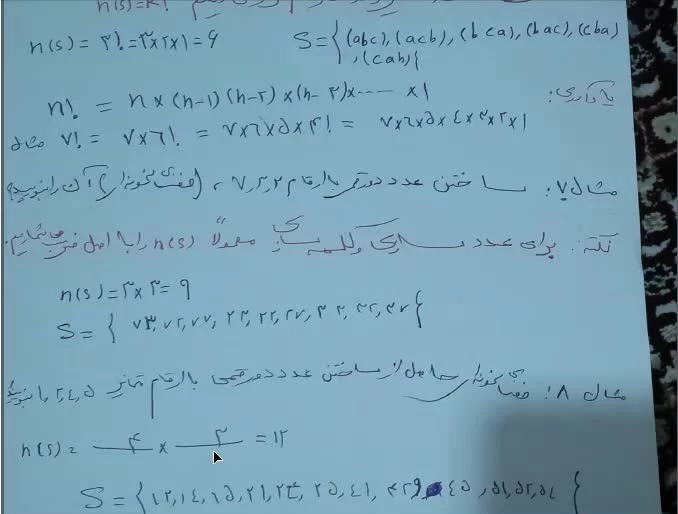 n(S)=k!
n(S) = ۳! = ۳×۲×۱ = ۶   S = {(abc), (acb), (bca), (bac), (cba)
, (cab)}
یادآوری:
n! = n × (n-1)(n-۲) × (n-۳) × ..... × ۱
مثال ۷! = ۷×۶! = ۷×۶×۵×۴! = ۷×۶×۵×۴×۳×۲×۱
مثال ۷: ساختن عدد دورقمی با ارقام ۷,۳,۲ (فضای نمونه‌ای) آن را بنویسید؟
نکته: برای عدد سازی و کلمه سازی معمولاً n(S) را با اصل ضرب می‌شماریم.
n(S) = ۳×۳ = ۹
S = { ۷۳, ۷۲, ۷۷, ۲۳, ۲۲, ۲۷, ۳۳, ۳۲, ۳۷ }
مثال ۸: فضای نمونه‌ای حاصل از ساختن عدد دورقمی با ارقام متمایز ۱,۲,۴,۵ بنویسید
n(S) = ۴ × ۳ = ۱۲
S = { ۱۲, ۱۴, ۱۵, ۲۱, ۲۴, ۲۵, ۴۱, ۴۲, ۴۵, ۵۱, ۵۲, ۵۴ }